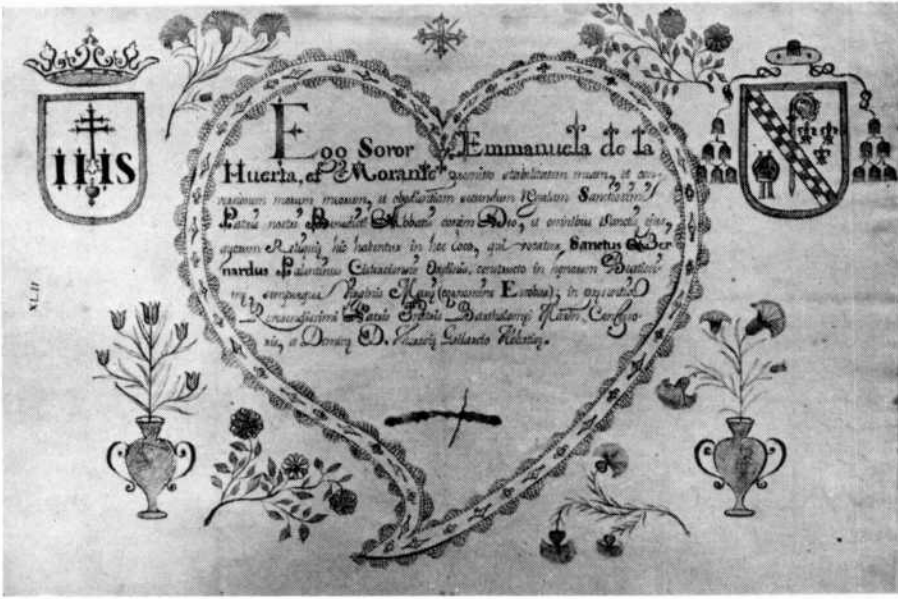 IHS
Ego Soror Emmanuela de la
Huerta, et Morante promitto stabilitatem meam, et con-
versionem morum meorum, et obedientiam secundum Regulam Sanctissimi
Patris nostri Benedicti Abbatis coram Deo, et omnibus Sanctis ejus,
quorum Reliquiæ hic habentur in hoc loco, qui vocatur Sanctus Ber
nardus Cisterciensis Ordinis, constructo in honorem Beatissi-
mæ, semperque Virginis Mariæ in præsentia
Reverendissimi Patris Bartholomæi Confesso-
ris, et Dominæ D. Abbatissæ.
XLII